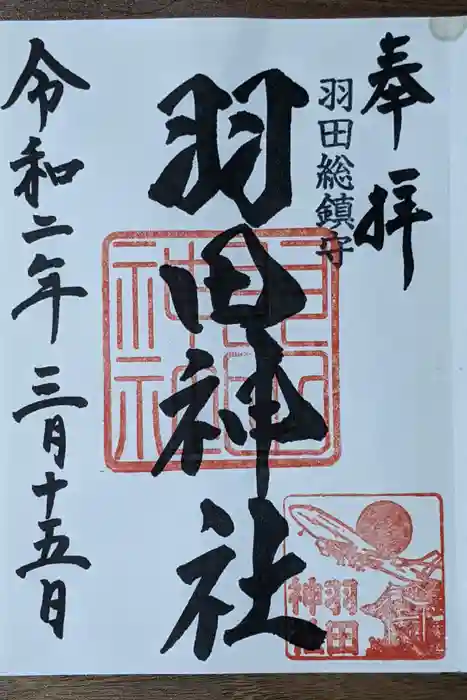 奉拝
羽田総鎮守
羽田神社
令和二年三月十五日
羽田
神社